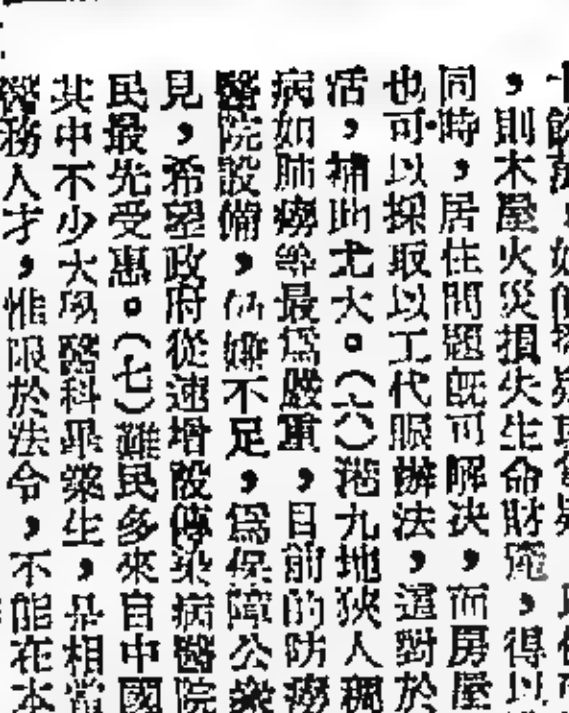 ，則木屋火災損失生命財，得以
同時，居住問題既可解決，而房屋
也可以採取以工代賑辦法，這對於
活，補助尤大。（六）港九地狹人稠
病如肺癆等最爲嚴重，目前的防癆
醫院設備，仍嫌不足，爲保障公衆
見，希望政府從速增設傳染病醫院
民最先受惠。（七）難民多來自中國
其中不少大醫科畢業生，是相當
務人才，惟限於法令，不能在本